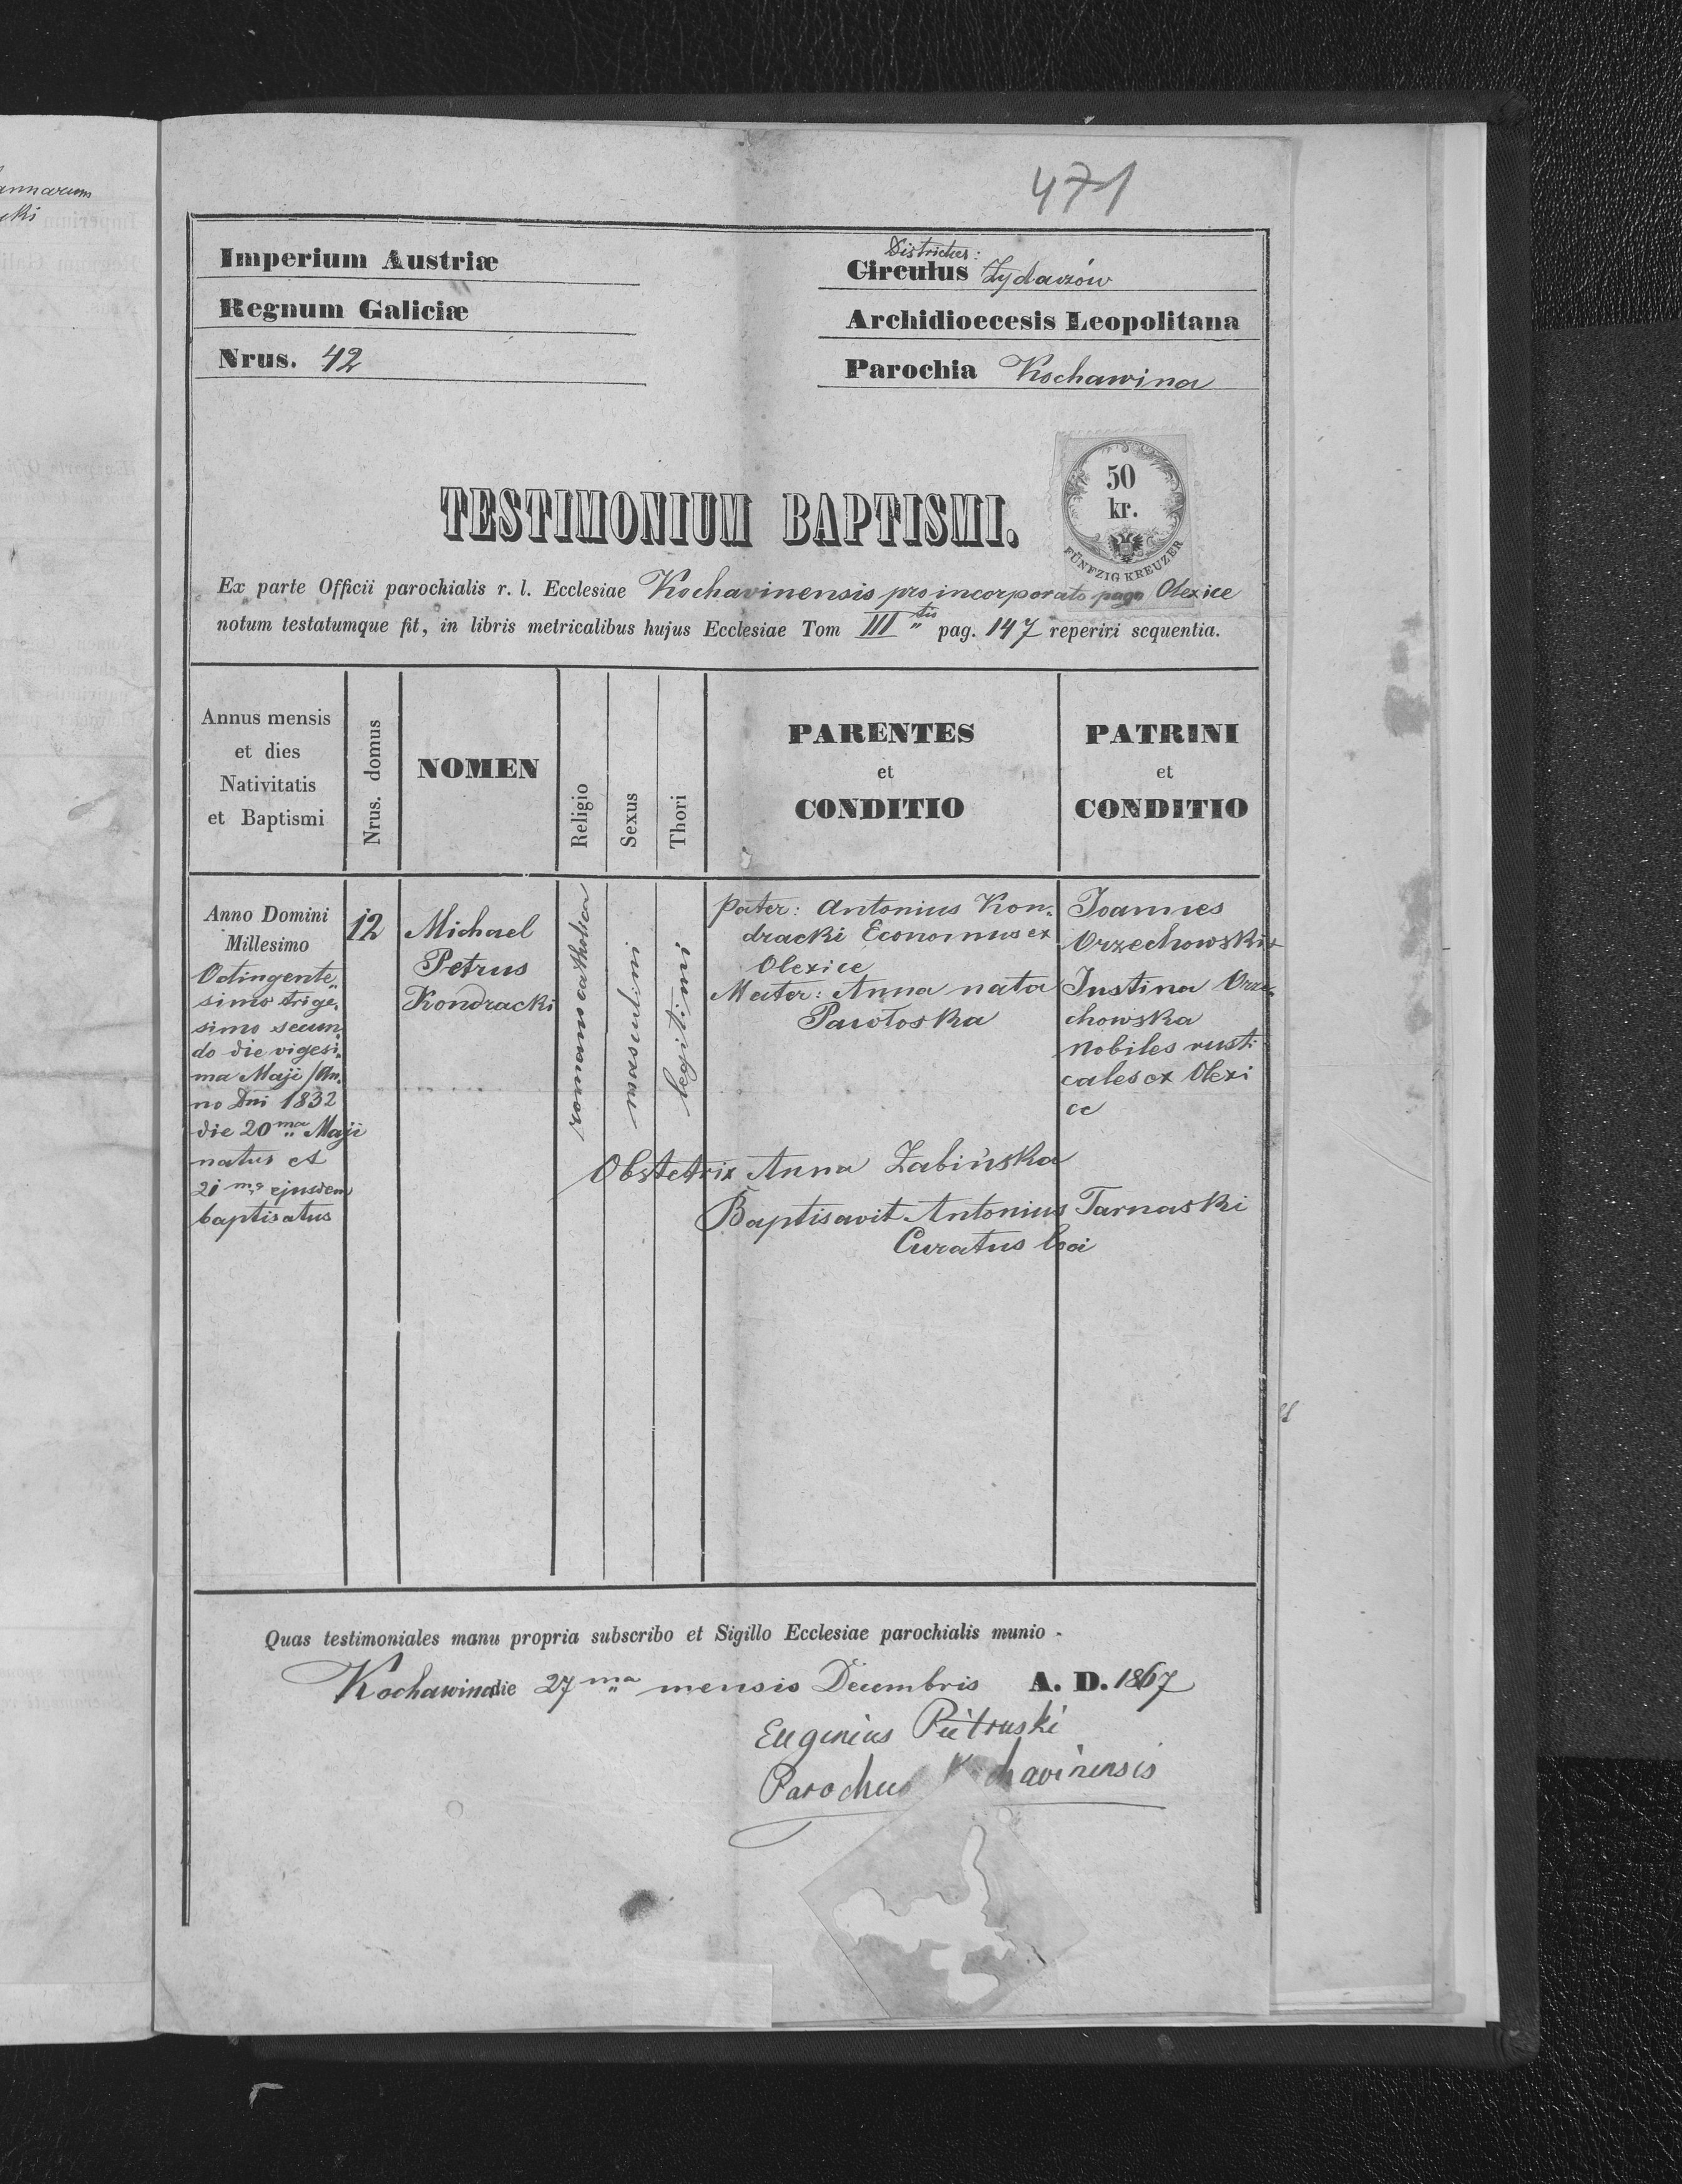 annarum
cki
471
Imperium Austriæ
Regnum Galiciæ
Nrus. 42
Districtus:
Circulus Zydaczów
Archidioecesis Leopolitana
Parochia Kochawina
50
kr.
FÜNFZIG KREUZER
TESTIMONIUM BAPTISMI.
Ex parte Officii parochialis r. l. Ecclesiae Kochavinensis pro incorporato pago Olexice
notum testatumque fit, in libris metricalibus hujus Ecclesiae Tom III tis pag. 147 reperiri sequentia.
Annus mensis
et dies
Nativitatis
et Baptismi
Nrus. domus
NOMEN
Religio
Sexus
Thori
PARENTES
et
CONDITIO
PATRINI
et
CONDITIO
Anno Domini
Millesimo
Octingente„
simo trige„
simo secun„
do die vigesi„
ma Maji /An„
no Dni 1832
die 20 ma Maji
natus et
21 ma ejusdem
baptisatus
12
Michael
Petrus
Kondracki
romano catholica
masculini
legitimi
Pater: Antonius Kon„
dracki Economus ex
Olexice
Mater: Anna nata
Pawłoska
Joannes
Orzechowski +
Justina Orze„
chowska
Nobiles rusti
cales ex Olexi
ce
Obstetrix Anna Zabińska
Baptisavit Antonius Tarnaski
Curatus loci
Quas testimoniales manu propria subscribo et Sigillo Ecclesiae parochialis munio -
Kochawina die 27 ma mensis Decembris A. D. 1867
Eugenius Pietruski
Parochus Kochavinensis